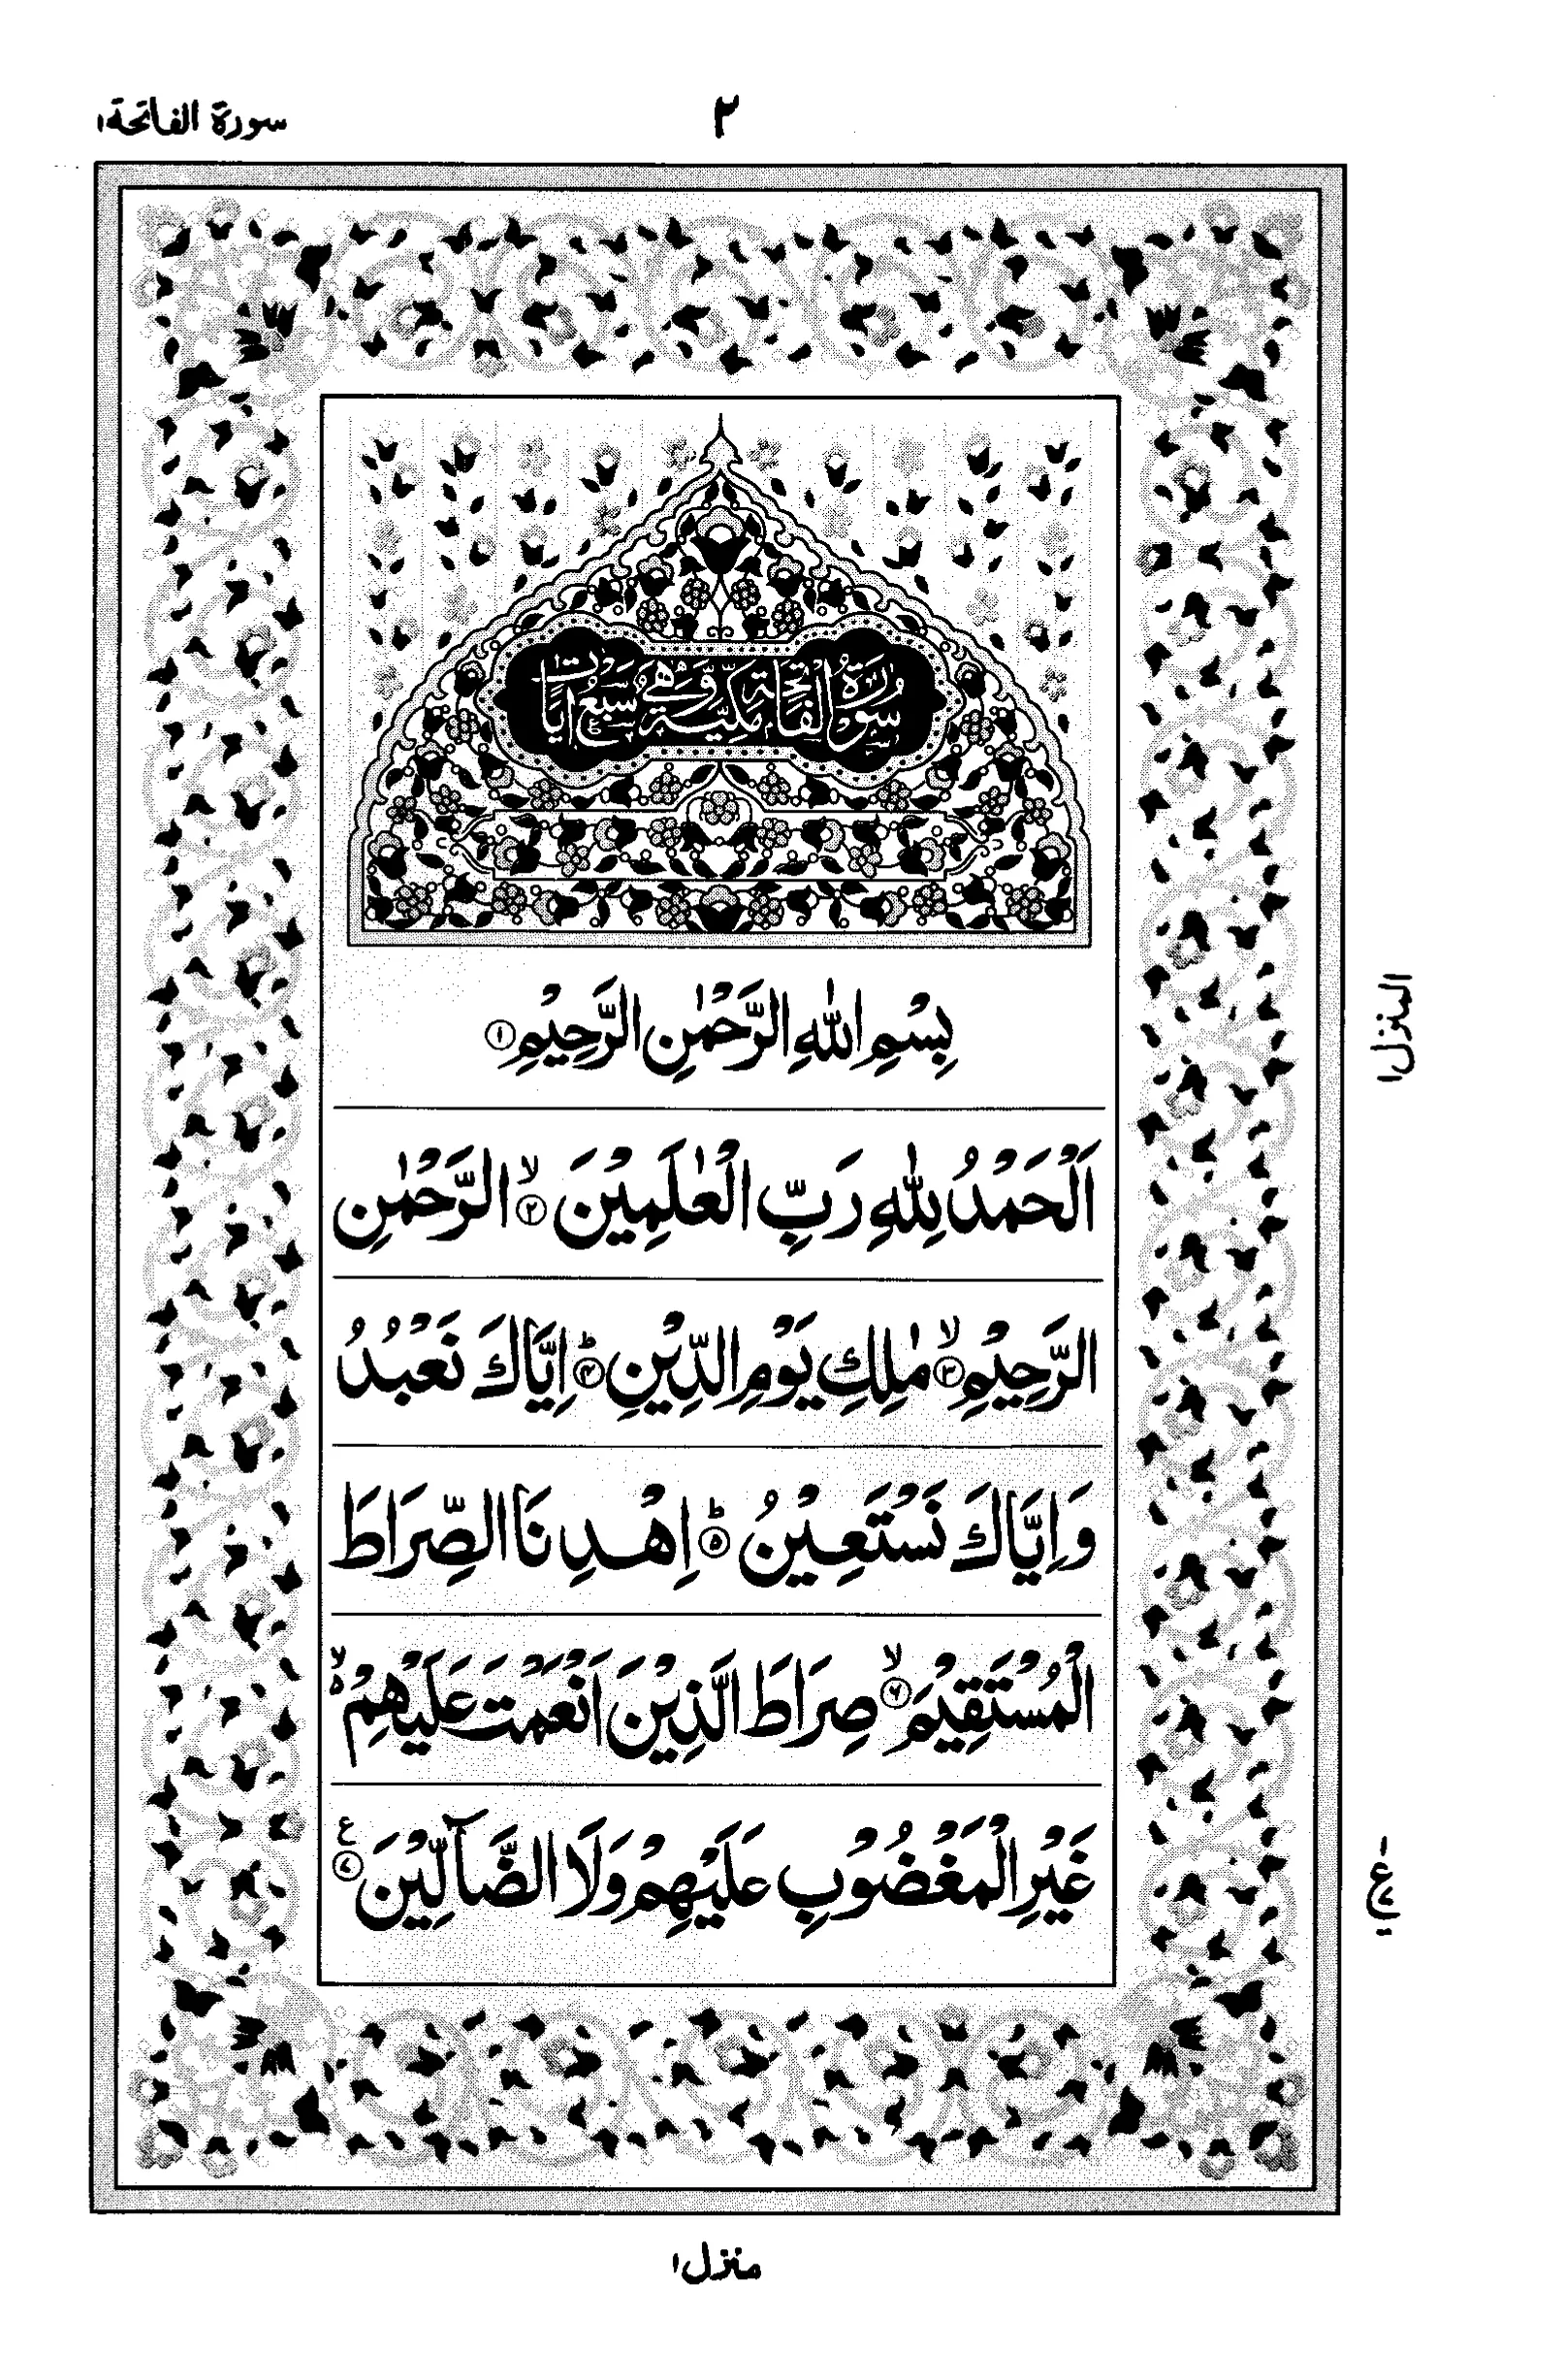 سورة الفاتحة ١
٢
سُوْرَةُ الْفَاتِحَةِ مَكِّيَّةٌ وَّهِيَ سَبْعُ اٰيَاتٍ
بِسْمِ اللّٰهِ الرَّحْمٰنِ الرَّحِيْمِ ①
اَلْحَمْدُ لِلّٰهِ رَبِّ الْعٰلَمِيْنَ ۙ② الرَّحْمٰنِ
الرَّحِيْمِ ۙ③ مٰلِكِ يَوْمِ الدِّيْنِ ؕ④ اِيَّاكَ نَعْبُدُ
وَاِيَّاكَ نَسْتَعِيْنُ ؕ⑤ اِهْدِنَا الصِّرَاطَ
الْمُسْتَقِيْمَ ۙ⑥ صِرَاطَ الَّذِيْنَ اَنْعَمْتَ عَلَيْهِمْ ۙ۵
غَيْرِ الْمَغْضُوْبِ عَلَيْهِمْ وَلَا الضَّآلِّيْنَ ⑦ ع
المنزل ١
ع
منزل ١